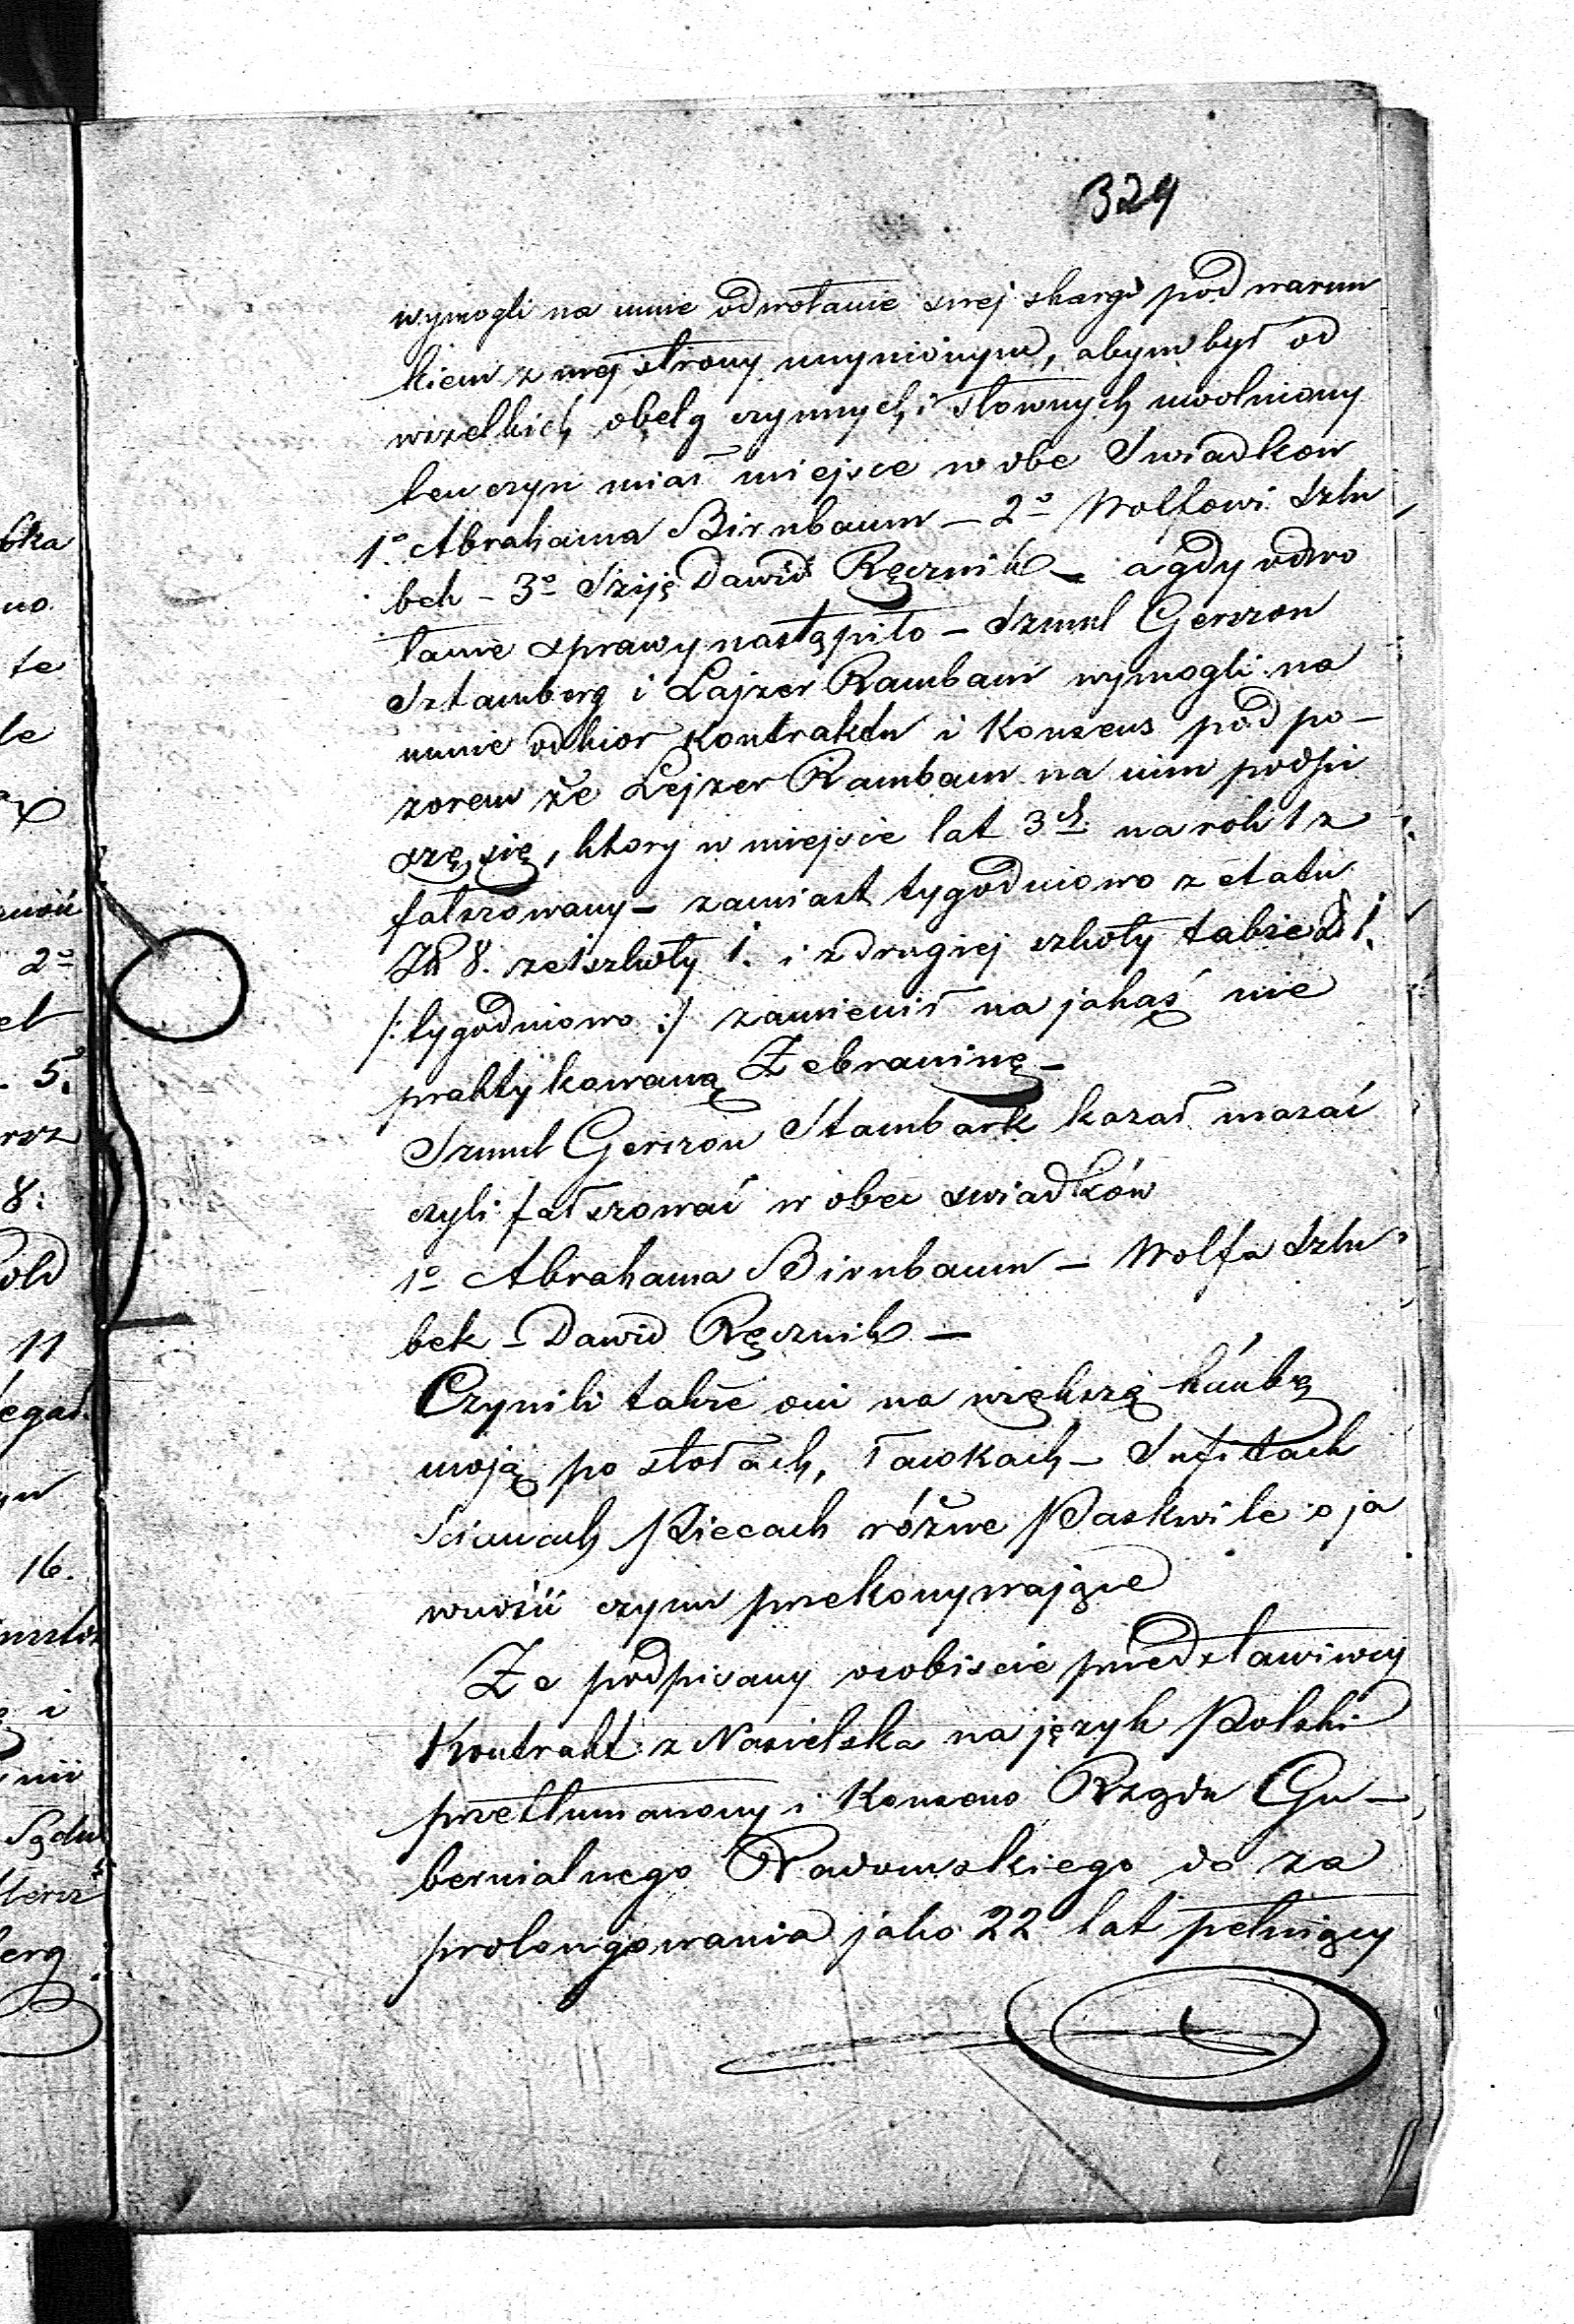 324
wymogli na mnie odwołanie swej skargi pod warun
kiem z mej strony uczynionym, abym był od
wszelkich obelg czynnych i słownych uwolniony
ten czyn miał miejsce w obe Swiadkow
1º Abrahama Birnbaum – 2º Wolfowi Szlu
bek – 3º Szyję Dawid Ręcznik – a gdy odwo
łanie sprawy nastąpiło – Szmul Gerszon
Sztamberg i Lajzer Rambam wymogli na
mnie odbior Kontraktu i Konsens pod po–
zorem że Lejzer Rambam na nim podpi
szę się, ktory w miejsce lat 3ch na rok 1 z
fałszowany – zamiast tygodniowo z etatu
8. ze szkoły 1. i z drugiej szkoły także 1.
/: tygodniowo :/ zamienił na jakąś nie
praktykowaną Zebraninę –
Szmul Gerszon Stambark kazał mazać
czyli fałszować w obec swiadków
1º Abrahama Birnbaum – Wolfa Szlu
bek – Dawid Ręcznik –
Czynili także oni na większą hańbę
moją po stołach, ławkach – Sufitach
Scianach Piecach różne Paskwile o ja
wności czym przekonywające
Ze podpisany osobiscie przedstawiwszy
Kontrakt z Nasielska na język Polski
przetłumaczony i Konsens Rządu Gu–
bernialnego Radomskiego do za
prolongowania jako 22 lat pełniący
bka
no
te
le
2º
et
5.
rsz
8:
old
11
egał
16.
i
nii
Sądu
Hersz
berg